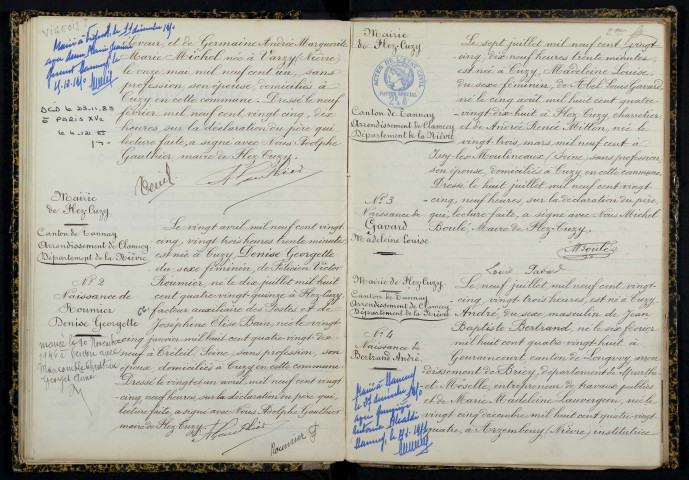 VIGEUIL
11 décembre 19
DCD le 23.11.83
à PARIS XVe
Levure, et de Germaine Andrée Marguerite
Marie Michel née à Varzy (Nièvre)
le onze mai mil neuf cent un, sans
profession, son épouse, domiciliés à
Cuzy en cette commune. Dressé le neuf
février, mil neuf cent vingt cinq, dix
heures sur la déclaration du père qui
lecture faite, a signé avec Nous Adolphe
Gauthier, maire de Flez-Cuzy.
Gauthier
Mairie
de Flez-Cuzy
Canton de Tannay
Arrondissement de Clamecy
Département de la Nièvre
No 2
Naissance de
Roumier
Denise Georgette
Le vingt avril mil neuf cent vingt
cinq, vingt trois heures trente minutes
est née à Cuzy, Denise Georgette
du sexe féminin, de Félicien Victor
Roumier, né le dix juillet mil huit
cent quatre vingt quinze à Flez-Cuzy
facteur auxiliaire des Postes et de
Joséphine Elise Bain, née le vingt
cinq janvier mil huit cent quatre-vingt-dix
neuf à Créteil Seine, sans profession, son
épouse domiciliés à Cuzy en cette commune
Dressé le vingt et un avril, mil neuf cent vingt
cinq, neuf heures, sur la déclaration du père, qui
lecture faite, a signé avec Nous Adolphe Gauthier
maire de Flez-Cuzy.
Gauthier
Roumier
Mairie
de Flez-Cuzy
Canton de Tannay
Arrondissement de Clamecy
Département de la Nièvre
No 3
Naissance de
Gavard
Madeleine Louise
Le sept juillet mil neuf cent vingt
cinq, dix neuf heures trente minutes
est née à Cuzy, Madeleine Louise,
du sexe féminin, de Abel Louis Gavard,
né le cinq août mil huit cent quatre
vingt-dix huit à Flez Cuzy, charretier
et de Andrée Renée Millon, née le
vingt trois mars mil neuf cent à
Issy-les-Moulineaux (Seine, sans profession,
son épouse, domiciliés à Cuzy en cette commune
Dressé le huit juillet mil neuf cent vingt
cinq, neuf heures sur la déclaration du père,
qui, lecture faite, a signé avec Nous Michel
Boulé, Maire de Flez-Cuzy.
MBoulé
Mairie de Flez-Cuzy
Canton de Tannay
Arrondissement de Clamecy
Département de la Nièvre
No 4
Naissance de
Bertrand André
Le neuf juillet mil neuf cent vingt-
cinq, vingt trois heures, est né à Cuzy
André, du sexe masculin de Jean
Baptiste Bertrand, né le six février
mil huit cent quatre vingt à
Gouraincourt, canton de Longwy, arron
dissement de Briey, département de Meurthe
et Moselle, entrepreneur de travaux publics
et de Marie Madeleine Lauvergeon, née le
vingt cinq décembre mil huit cent quatre vingt
quatre, à Arzembouy (Nièvre) institutrice